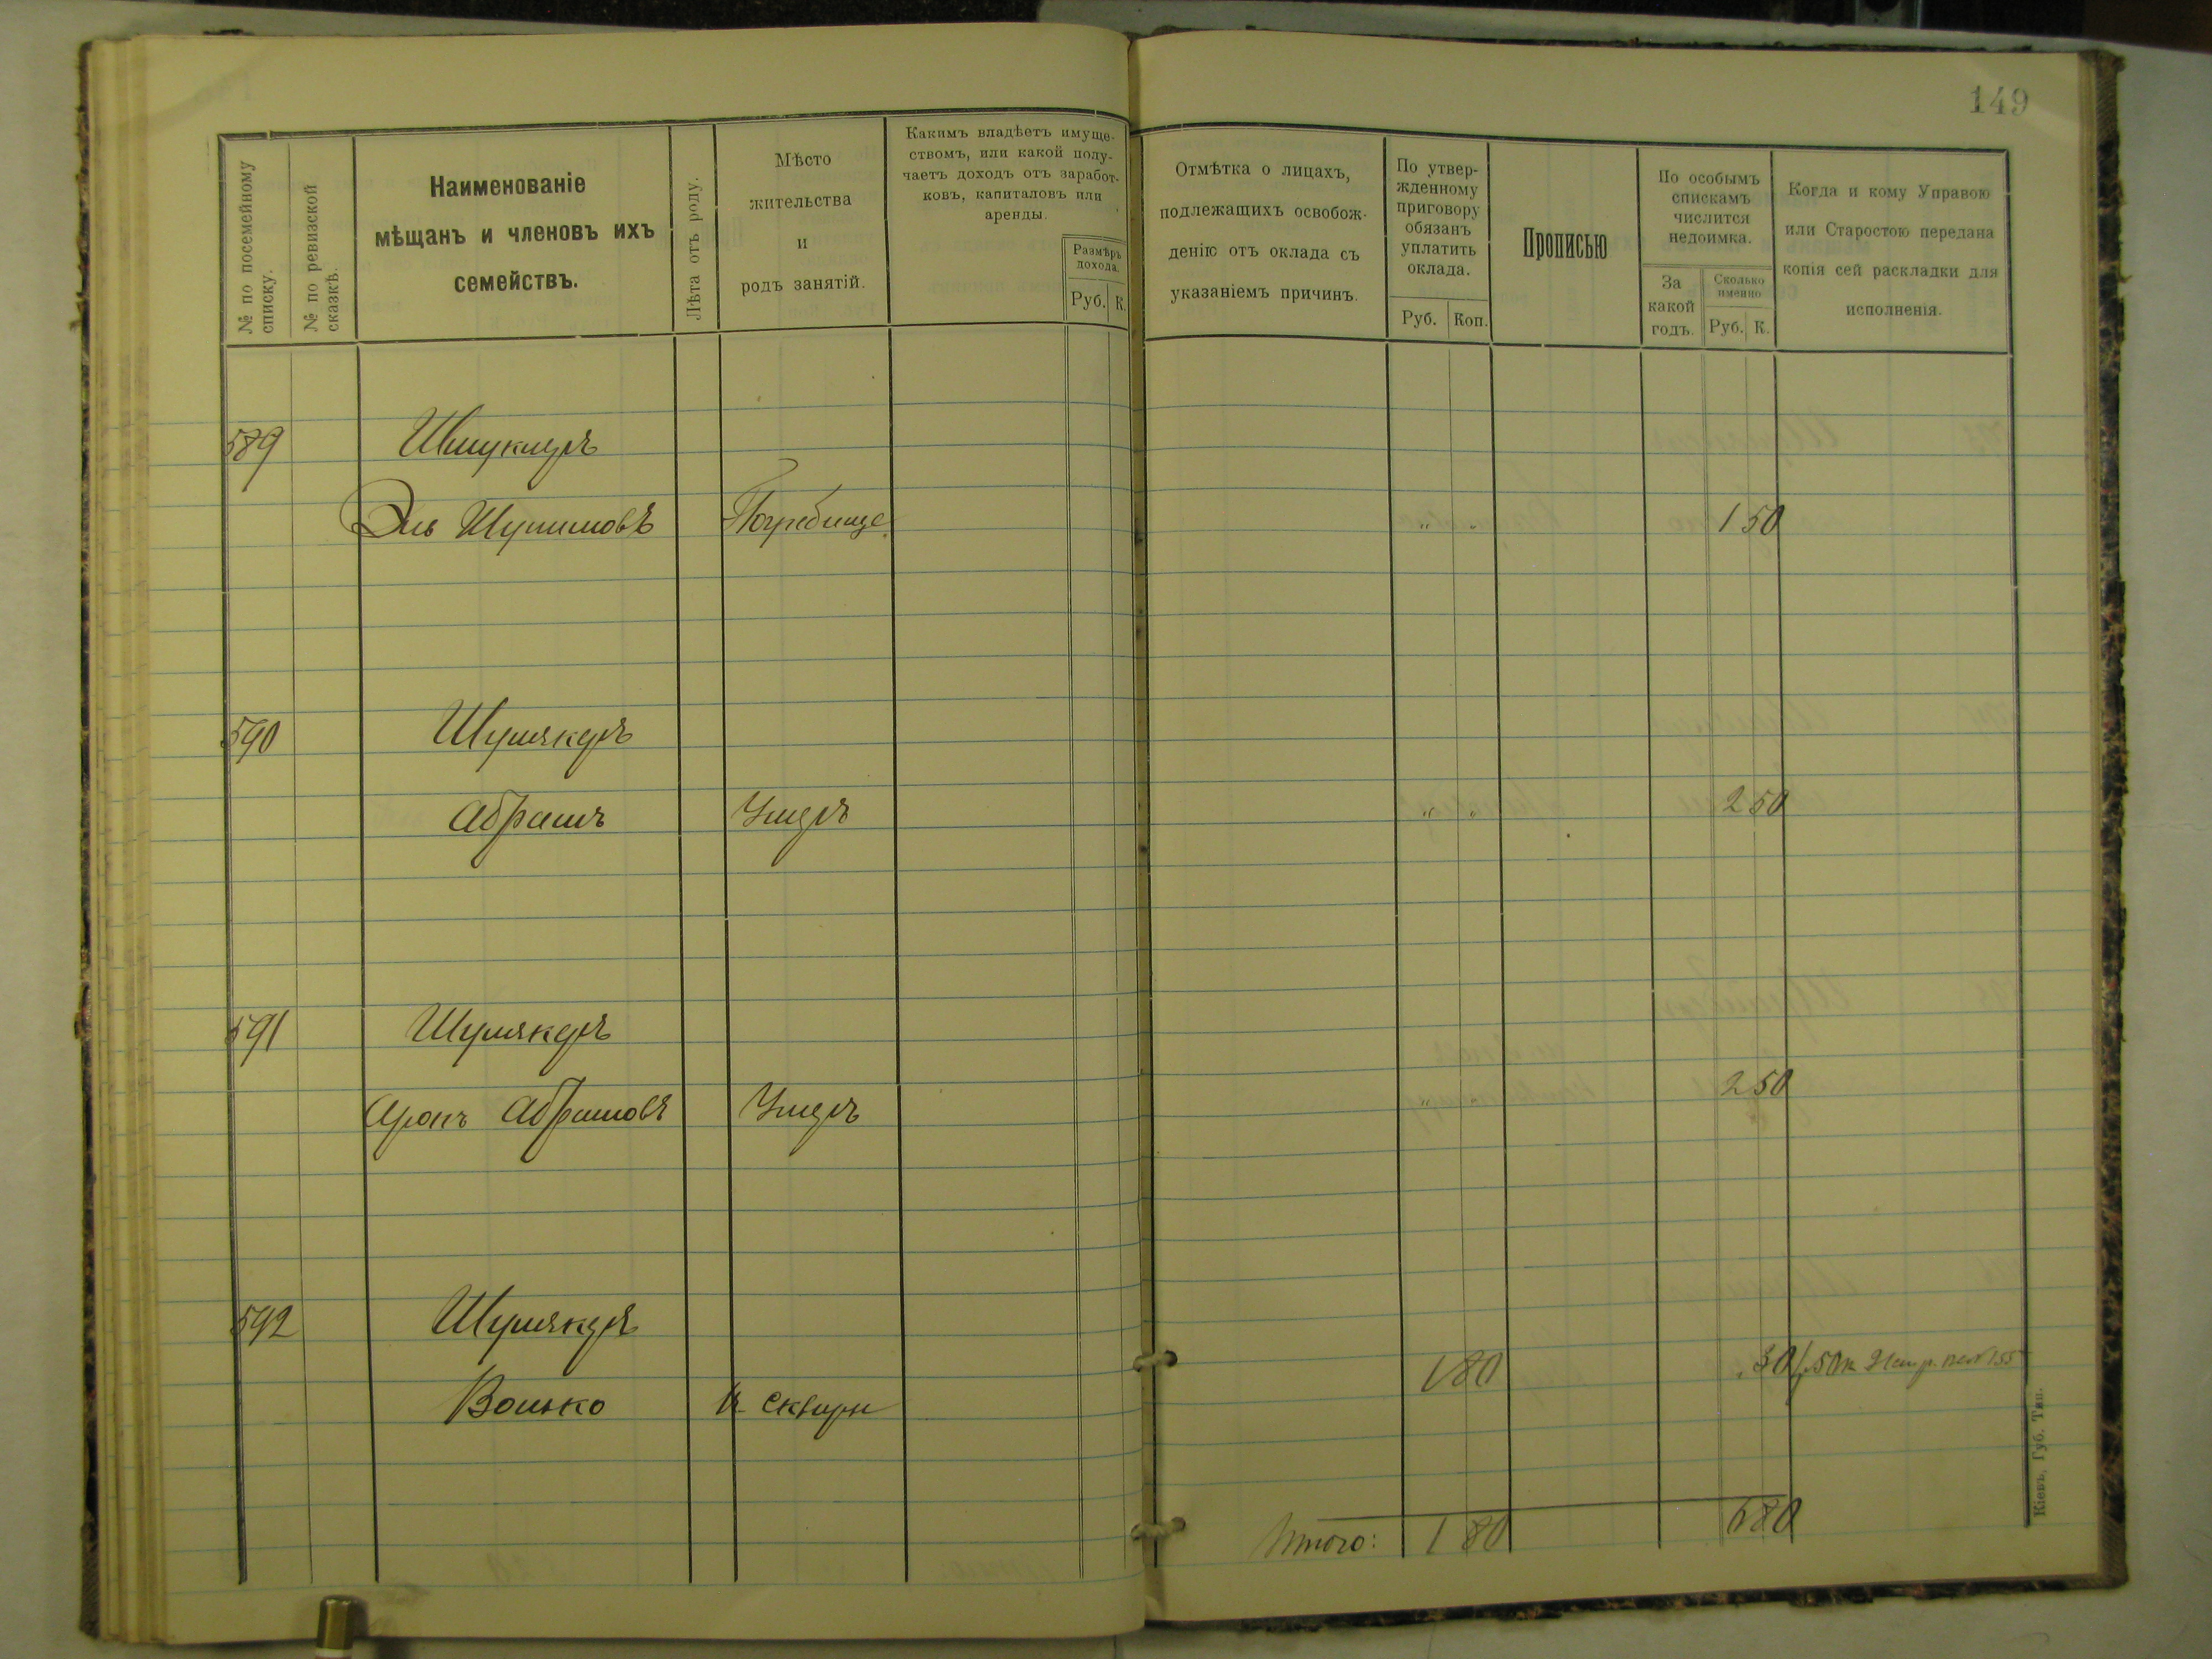 149
№ по посемейному списку.
№ по ревизской сказкѣ.
Наименованіе
мѣщанъ и членовъ ихъ
семействъ.
Лѣта отъ роду.
Мѣсто
жительства
и
родъ занятій.
Какимъ владѣетъ имуще-
ствомъ, или какой полу-
чаетъ доходъ отъ заработ-
ковъ, капиталовъ или
аренды.
Размѣръ
дохода.
Руб. К.
Отмѣтка о лицахъ,
подлежащихъ освобож-
денію отъ оклада съ
указаніемъ причинъ.
По утвер-
жденному
приговору
обязанъ
уплатить
оклада.
Руб. Коп.
Прописью
По особымъ
спискамъ
числится
недоимка.
За
какой
годъ.
Сколько
именно
Руб. К.
Когда и кому Управою
или Старостою передана
копія сей раскладки для
исполненія.
589 Шмуклеръ
Эль Шулимовъ Погребище „ „ 1 50
590 Шумякеръ
Абрамъ Умеръ „ „ 2 50
591 Шумякеръ
Аронъ Абрамовъ Умеръ „ „ 2 50
592 Шумякеръ
Волько м. Сквира 1 80 30
Итого: 1 80 6 80
Кіевъ, Губ. Тип.